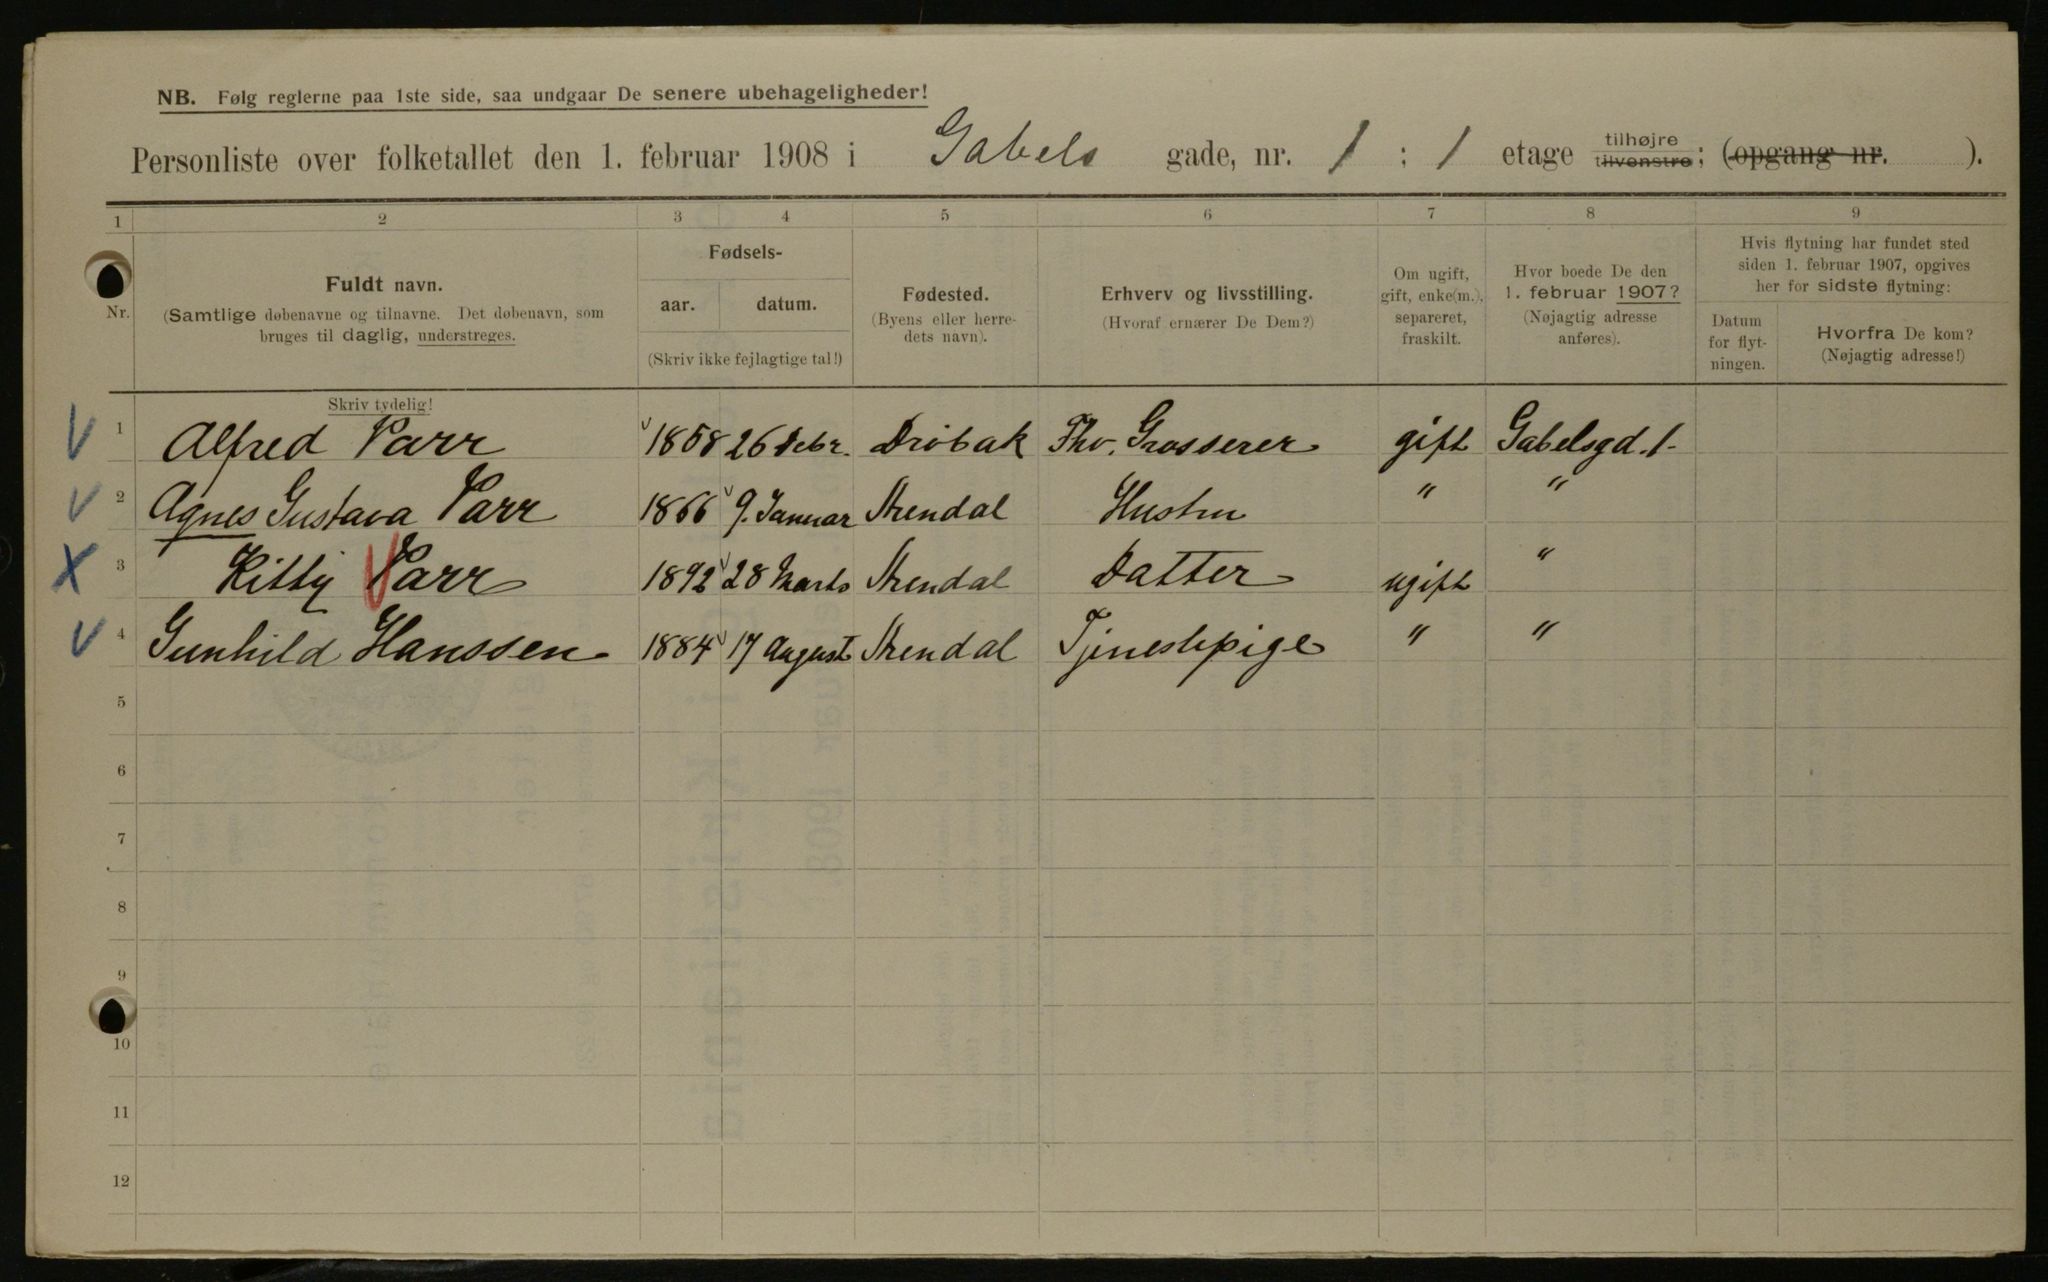 NB. Følg reglerne paa 1ste side, saa undgaar De senere ubehageligheder!
Personliste over folketallet den 1. februar 1908 i Gabels gade, nr. 1 : 1 etage tilhøjre tilvenstre; (opgang nr. ).
1 2 3 4 5 6 7 8 9
Nr.
Fuldt navn.
(Samtlige døbenavne og tilnavne. Det døbenavn, som
bruges til daglig, understreges.
Skriv tydelig!
Fødsels-
aar. datum.
(Skriv ikke fejlagtige tal!)
Fødested.
(Byens eller herre-
dets navn).
Erhverv og livsstilling.
(Hvoraf ernærer De Dem?)
Om ugift,
gift, enke(m.),
separeret,
fraskilt.
Hvor boede De den
1. februar 1907?
(Nøjagtig adresse
anføres).
Hvis flytning har fundet sted
siden 1. februar 1907, opgives
her for sidste flytning:
Datum
for flyt-
ningen.
Hvorfra De kom?
(Nøjagtig adresse!)
V 1 Alfred Parr 1858 26 Febr. Drøbak Fhv. Grosserer gift Gabelsgd. 1.
V 2 Agnes Gustava Parr 1866 9. Januar Arendal Hustru " "
X 3 Kitty Parr 1892 28 Marts Arendal Datter ugift "
V 4 Gunhild Hanssen 1884 17 August Arendal Tjenestepige " "
5
6
7
8
9
10
11
12